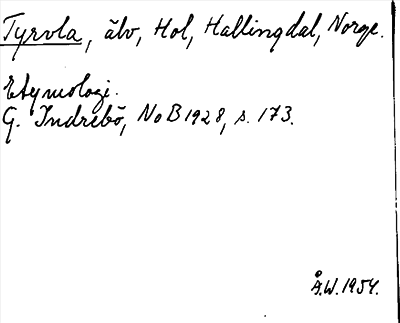 Tyrvla, älv, Hol, Hallingdal, Norge.
Etymologi.
G. Indrebö, NoB 1928, s. 173.
Å.W. 1954.